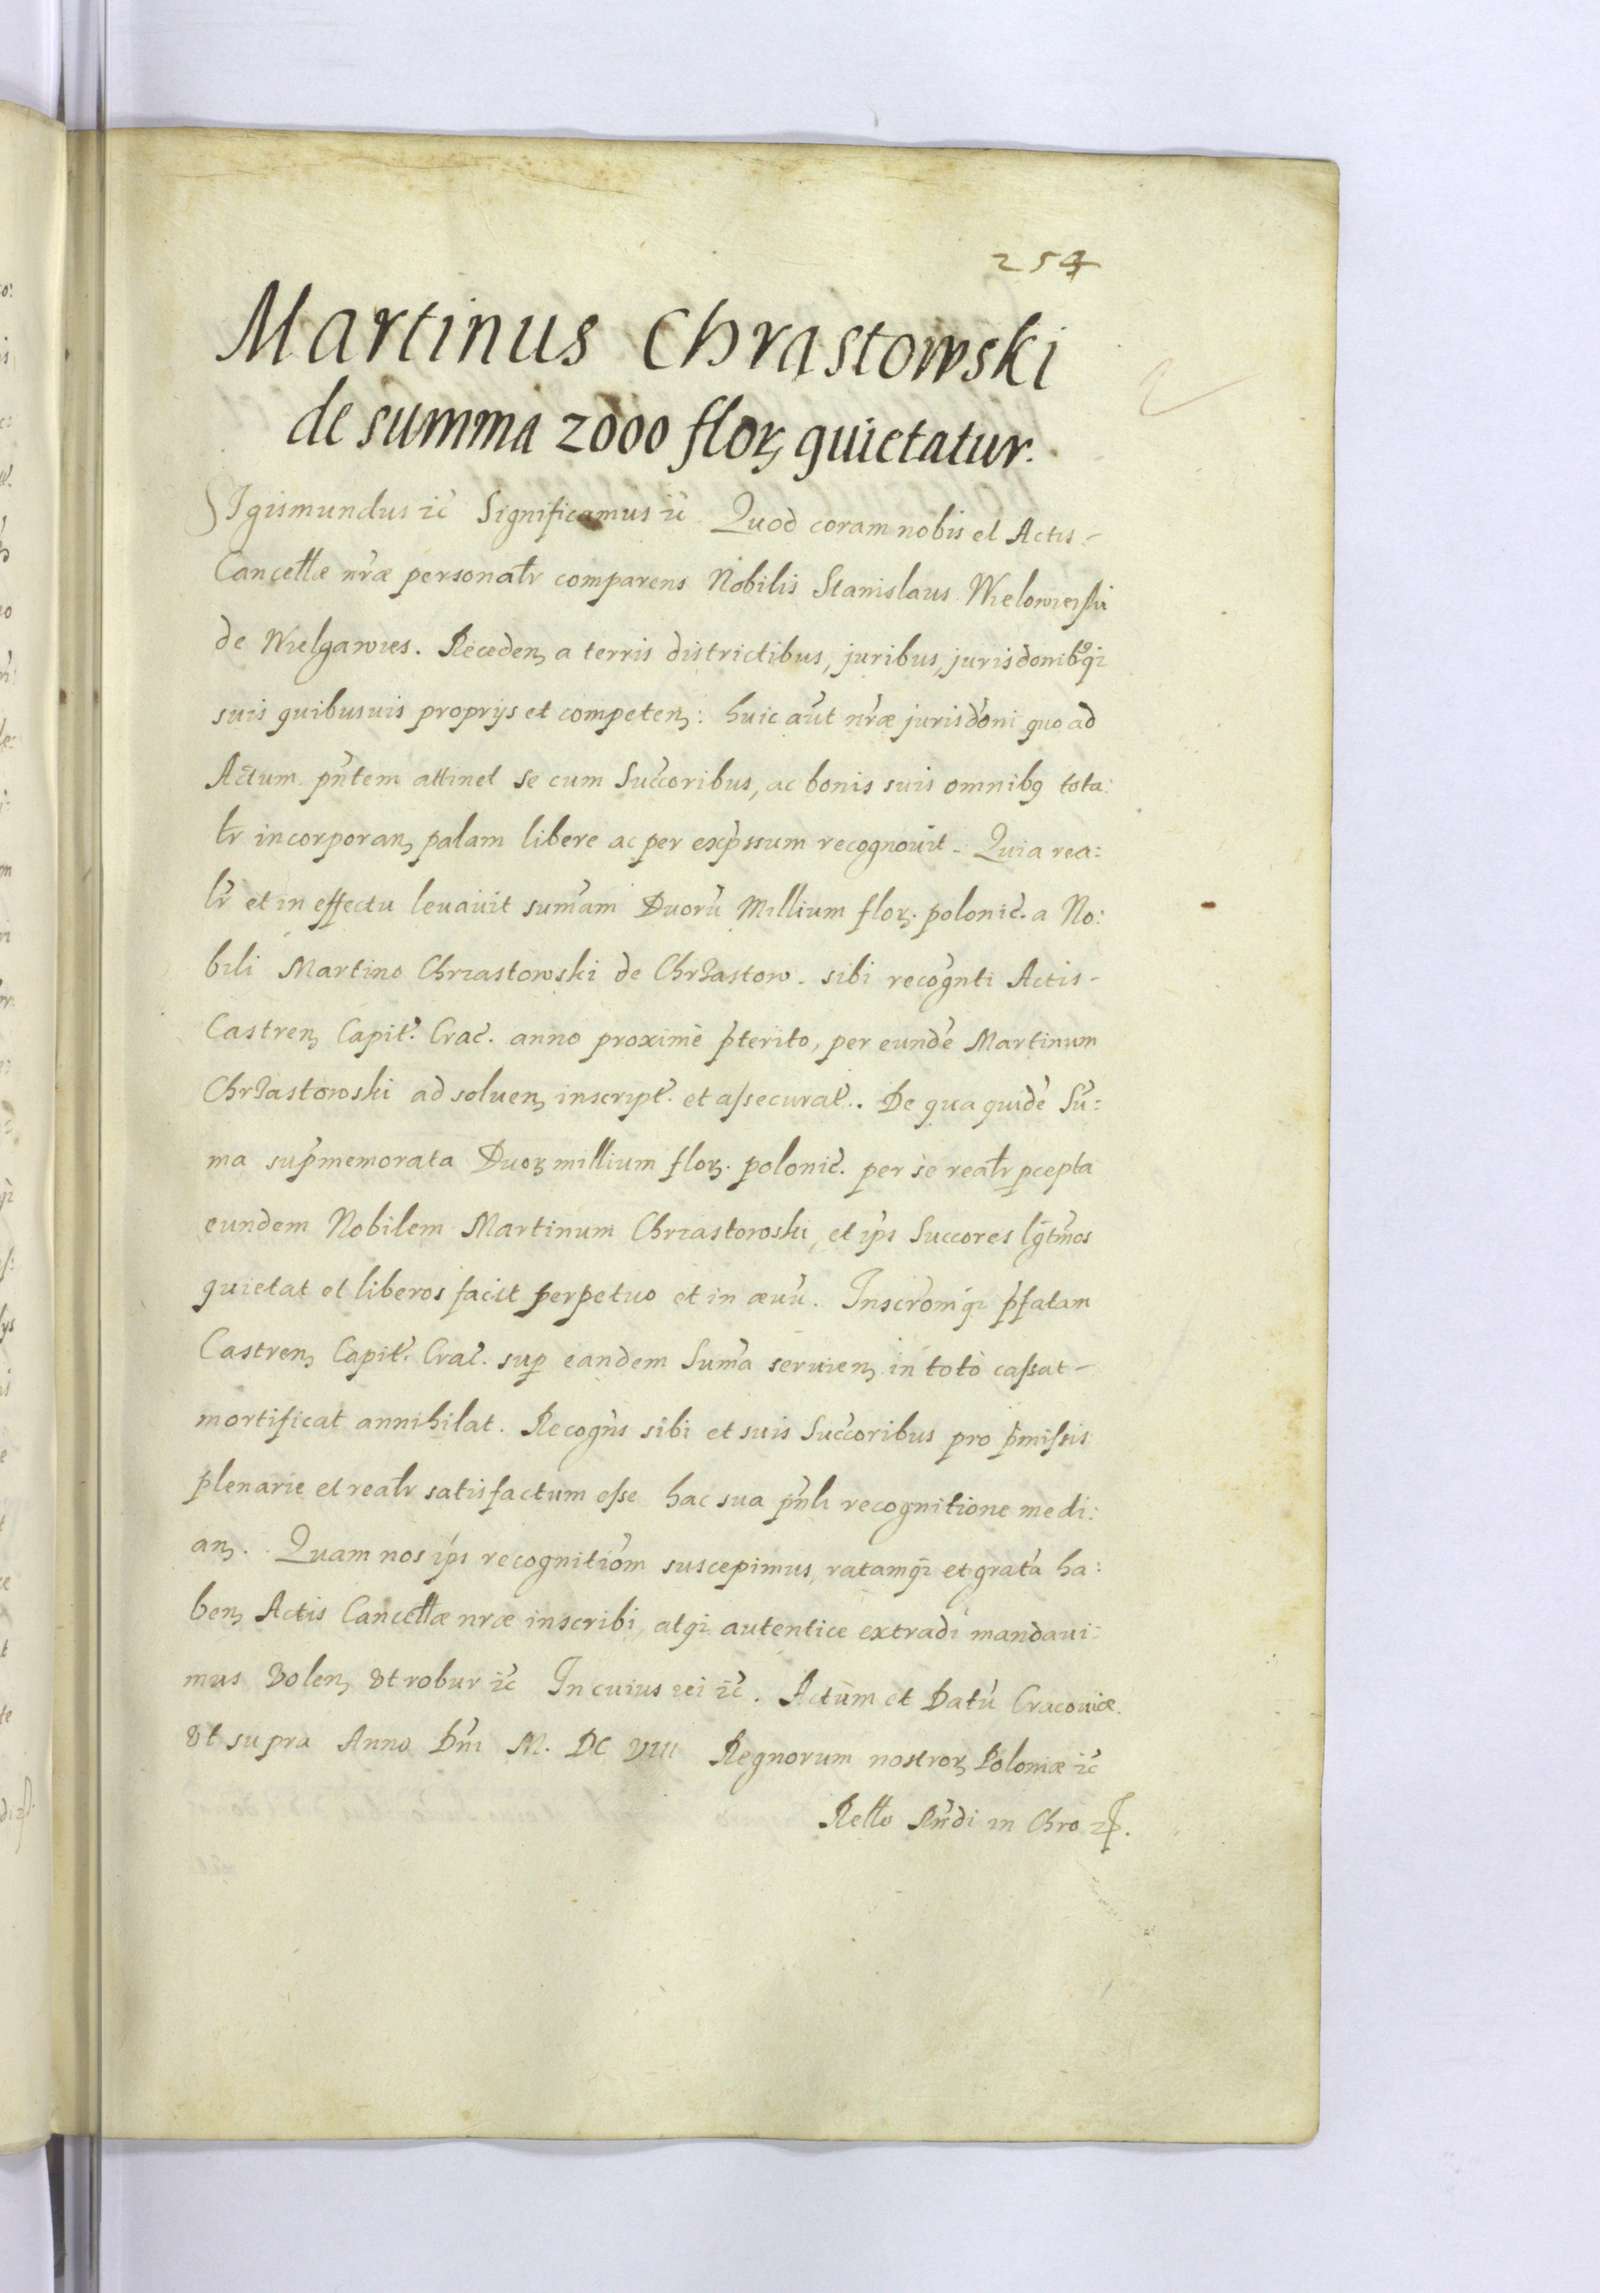 254
Martinus Chrastowski
de summa 2000 florꝫ quietatur.
SIgismundus ꝛc̃ Significamus ꝛc̃ Quod coram nobis et Actis
Cancellæ nr̃æ personalr̃ comparens Nobilis Stanislaus Wielowieyski
de Wielgawies. Recedenꝫ a terris districtibus, juribus, jurisdonibꝰqꝫ
suis quibusuis proprijs et competenꝫ: huic aũt nr̃æ jurisdõni quo ad
Actum pñtem attinet se cum Succ̃oribus, ac bonis suis omnibꝰ tota:
lr̃ incorporanꝫ palam libere ac per exp̃ssum recognouit. Quia rea:
lr̃ et in effectu leuauit sum̃am Duorũ Millium florꝫ. polonic̃. a No:
bili Martino Chrzastowski de Chrzastow. sibi recogñti Actis
Castrenꝫ Capit̃. Crac̃. anno proximè p̃terito, per eundẽ Martinum
Chrzastowski ad soluenꝫ inscript̃. et assecurat̃.. De qua quidẽ Sũ:
ma sup̃memorata Duorꝫ millium florꝫ. polonic̃. per se realr̃ pcepta
eundem Nobilem Martinum Chrzastowski, et ip̃s Succores lg̃tm̃os
quietat et liberos facit perpetuo et in æuũ. Inscrõmqꝫ p̃fatam
Castrenꝫ Capit̃. Crac̃. sup eandem Sum̃a seruienꝫ in totò cassat
mortificat annihilat. Recogñs sibi et suis Succ̃oribus pro p̃missis
plenarie et realr̃ satisfactum esse hac sua pñti recognitione medi:
anꝫ. Quam nos ip̃s recognitiõm suscepimus, ratamqꝫ et gratã ha:
benꝫ Actis Cancellæ nræ inscribi, atqꝫ autentice extradi mandaui:
mus Volenꝫ Vt robur ꝛc̃ In cuius rei ꝛc̃. Actum et Datũ Cracouiæ.
Vt supra Anno Dñi M. DC VIII Regnorum nostrorꝫ Poloniæ ꝛc̃
Rello Rñdi in Chro ꝛc.